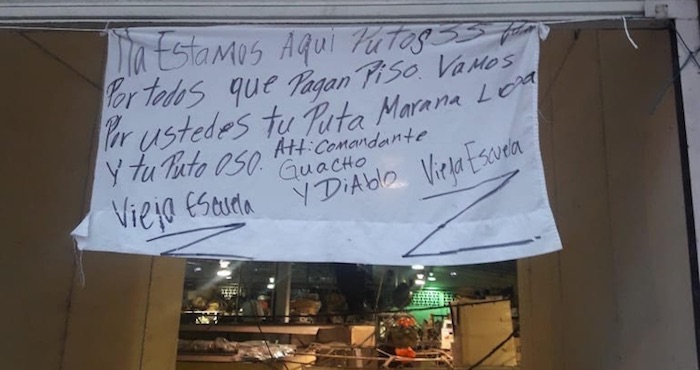 Ya Estamos Aqui Putos 35
Por todos que Pagan Piso. Vamos
Por ustedes tu Puta Marana Lupa
Y tu Puto OSO. Att: Comandante
Guacho
Y Diablo
Vieja Escuela
Vieja Escuela
Z
Z